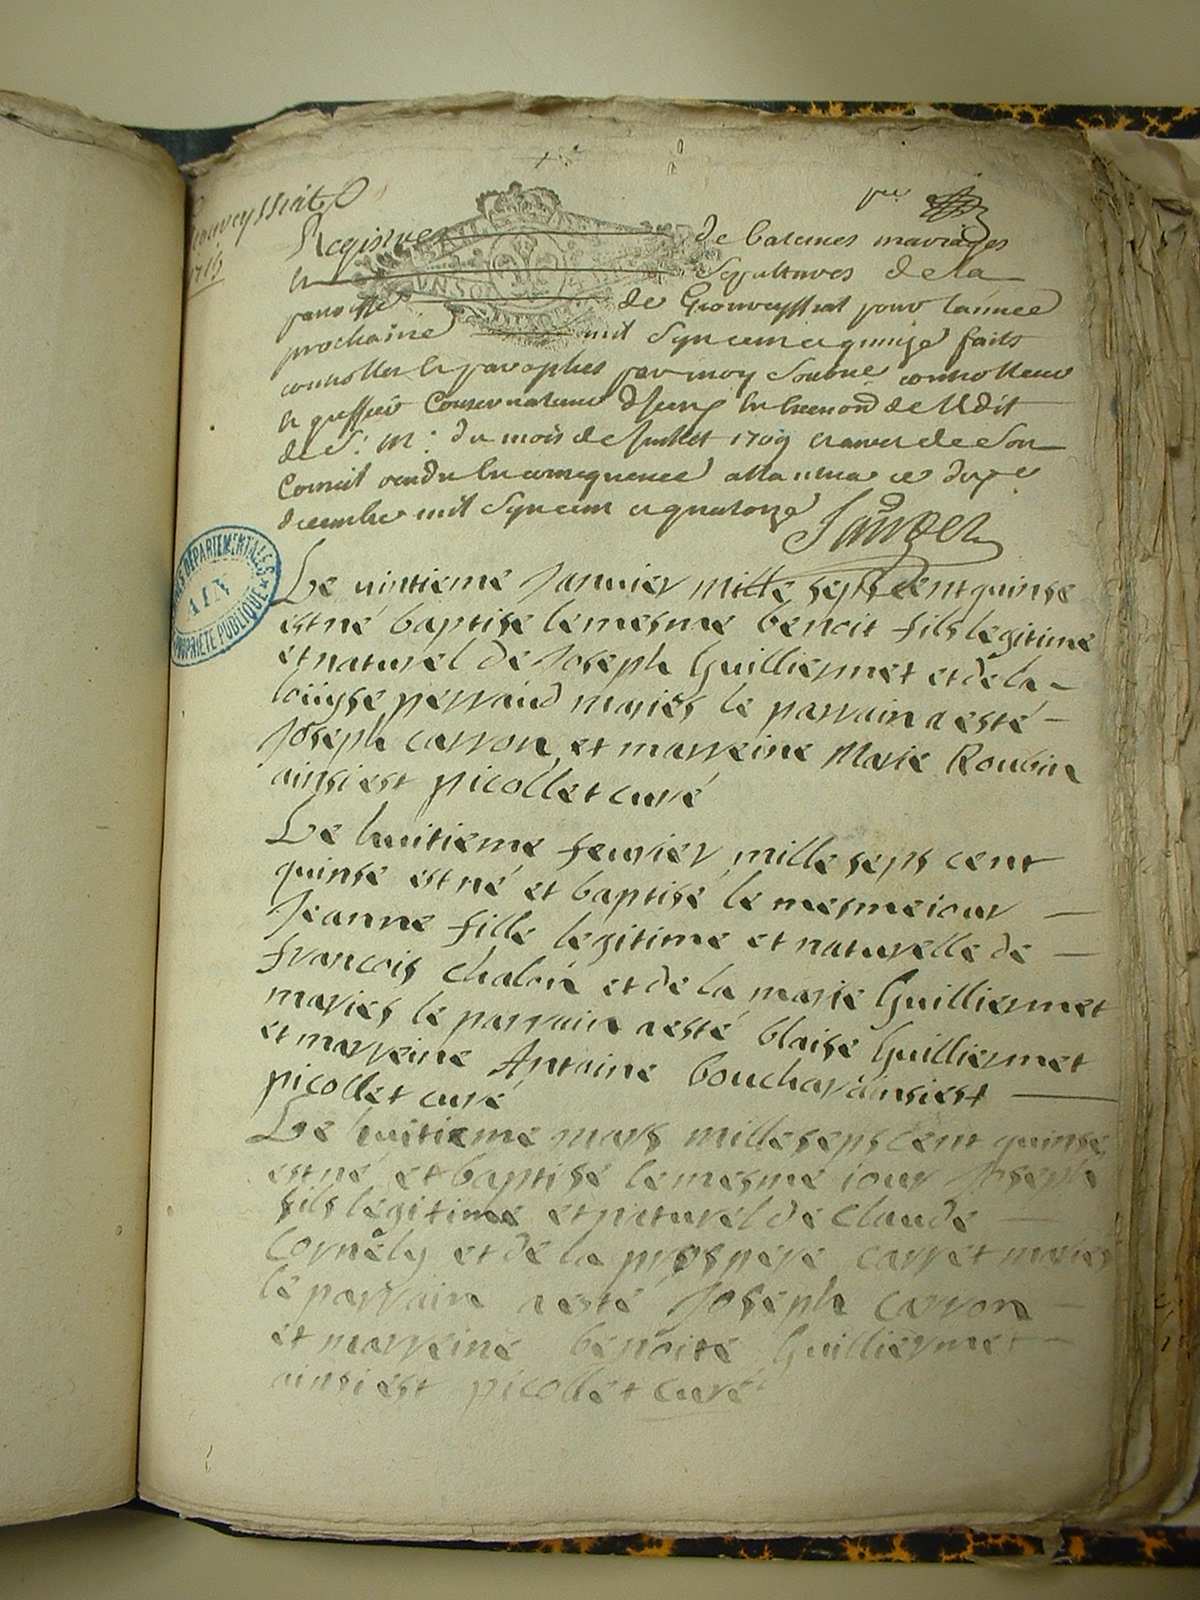 Grouveyssiat
1715
Registre de batemes mariages
et Sepultures de la
paroisse de Grouveyssiat pour lannee
prochaine mil Sept cent quinze faits
controller et paraphes par moy Soubne controlleur
et greffier Conservateur
de S. M. du mois de Juillet 1709 et arrest de Son
Conseil rendu en consequence a ce douze
decembre mil Sept cent quatorze
ARCHIVES DÉPARTEMENTALES
AIN
PROPRIÉTÉ PUBLIQUE
Le vintieme Janvier mille seps cent quinse
est né baptise le mesme benoit fils legitime
et naturel de Joseph Guilliermet et de la
loüyse perraud mariés le parrain a esté
Joseph carron et marreine Marie Roubin
ainsi est picollet curé
Le huitieme feurier mille seps cent
quinse est né et baptisé le mesme iour
Jeanne fille legitime et naturelle de
francois chaloin et de la marie Guilliermet
mariés le parrain a esté blaise Guilliermet
et marreine Antoine bouchar ainsi est
picollet curé
Le huitieme mars mille seps cent quinse
est né et baptisé le mesme iour Joseph
fils legitime et naturel de claude
Cornely et de la prospere carret mariés
le parrain a esté Joseph carron
et marreine benoite Guilliermet
ainsi est picollet curé